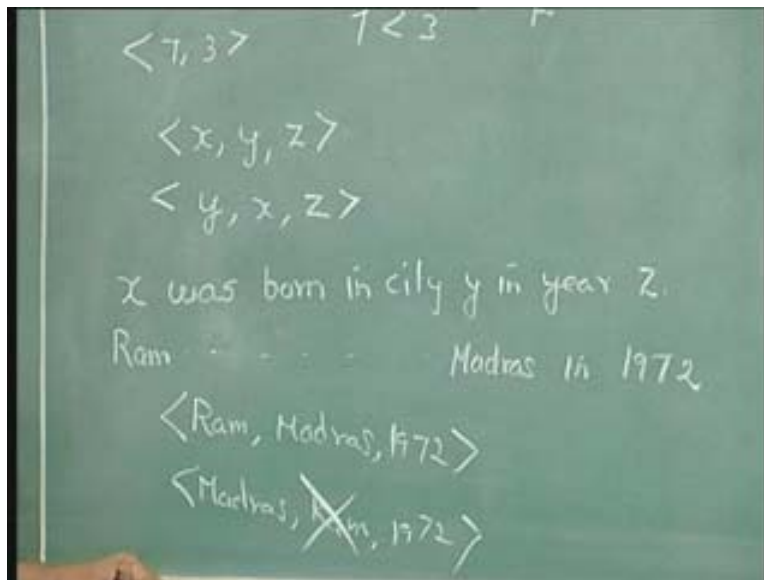 <7, 3> 7<3 F
<x, y, z>
<y, x, z>
x was born in city y in year z.
Ram - - - - - Madras in 1972
<Ram, Madras, 1972>
<Madras, Ram, 1972>